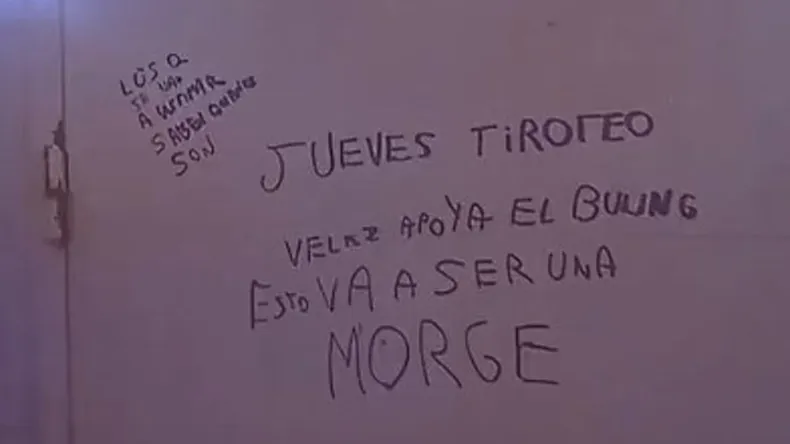 LOS Q
SE VAN
A
SABEN QUIENES
SON
JUEVES TIROTEO
VELEZ APOYA EL BULING
ESTO VA A SER UNA
MORGE